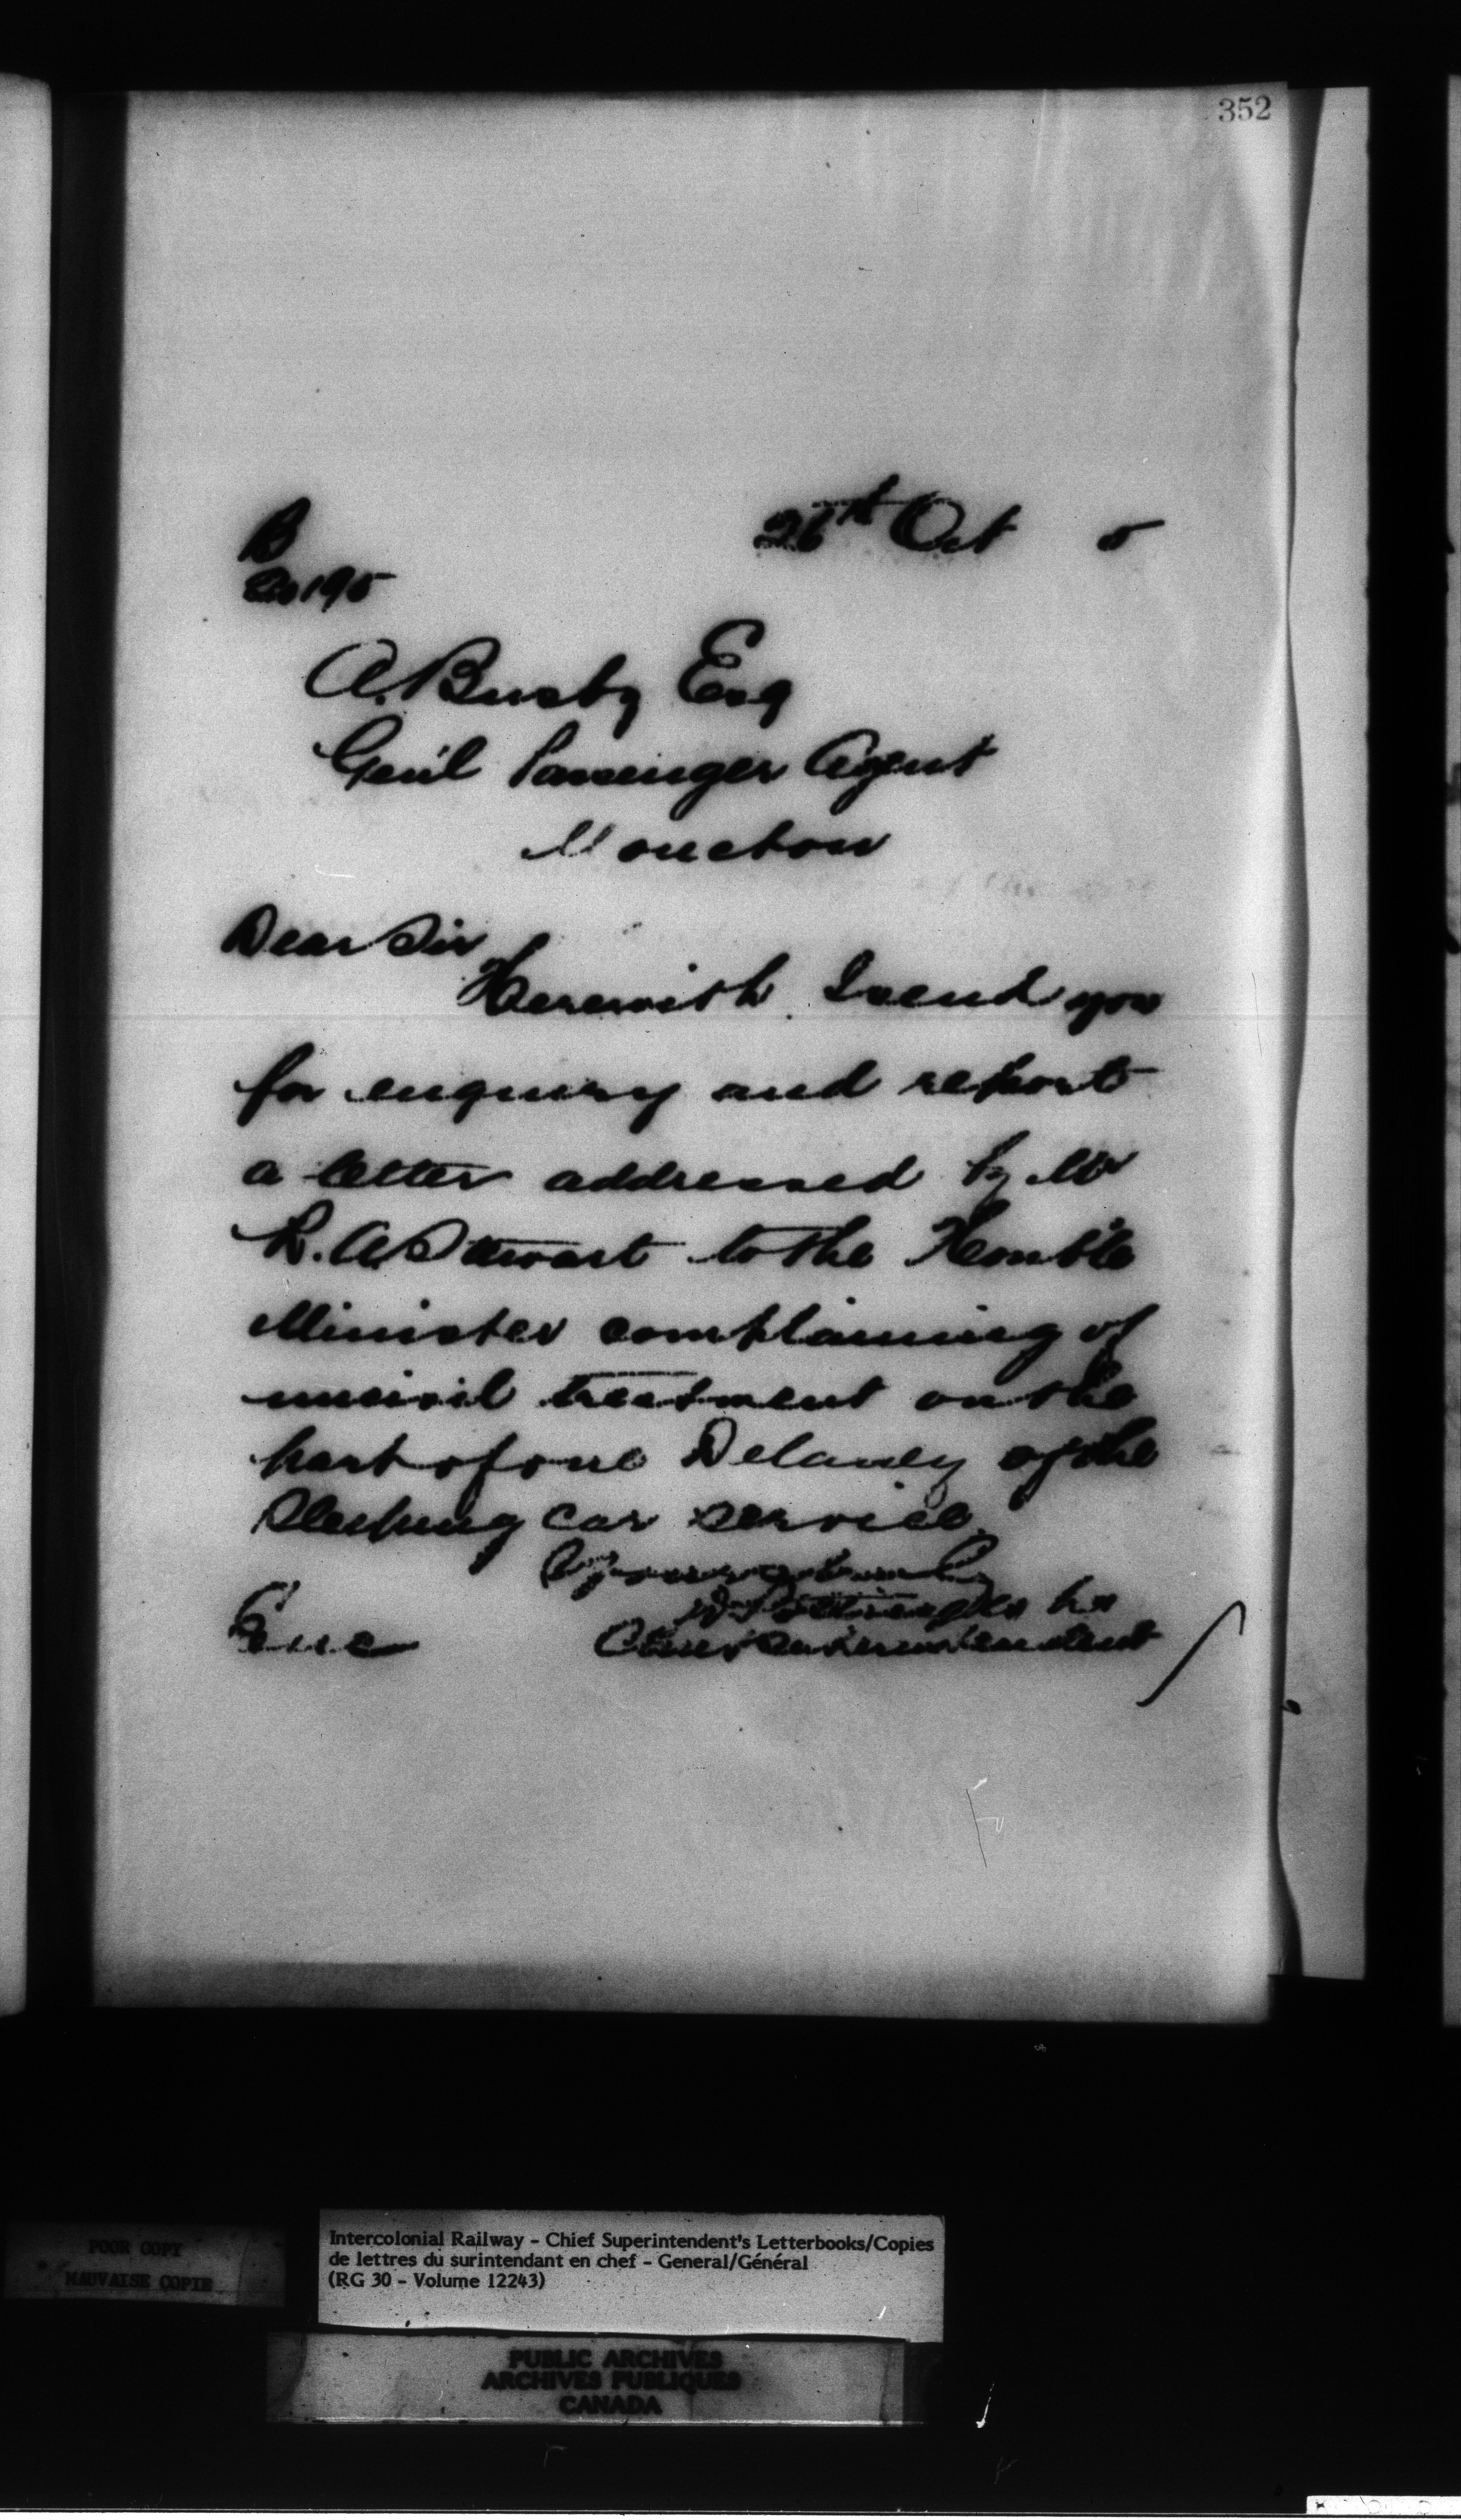 352
26th Oct 5
B
20195
A. Busby Esq
Gen'l Passenger Agent
Moncton
Dear Sir
Herewith I send you
for enquiry and report
a letter addressed by Mr
R. A. Stewart to the Honble
Minister complaining of
uncivil treatment on the
part of one Delaney of the
Sleeping car service
Yours truly
Chief Superintendent
Enc
POOR COPY
MAUVAISE COPIE
Intercolonial Railway - Chief Superintendent's Letterbooks/Copies
de lettres du surintendant en chef - General/Général
(RG 30 - Volume 12243)
PUBLIC ARCHIVES
ARCHIVES PUBLIQUES
CANADA